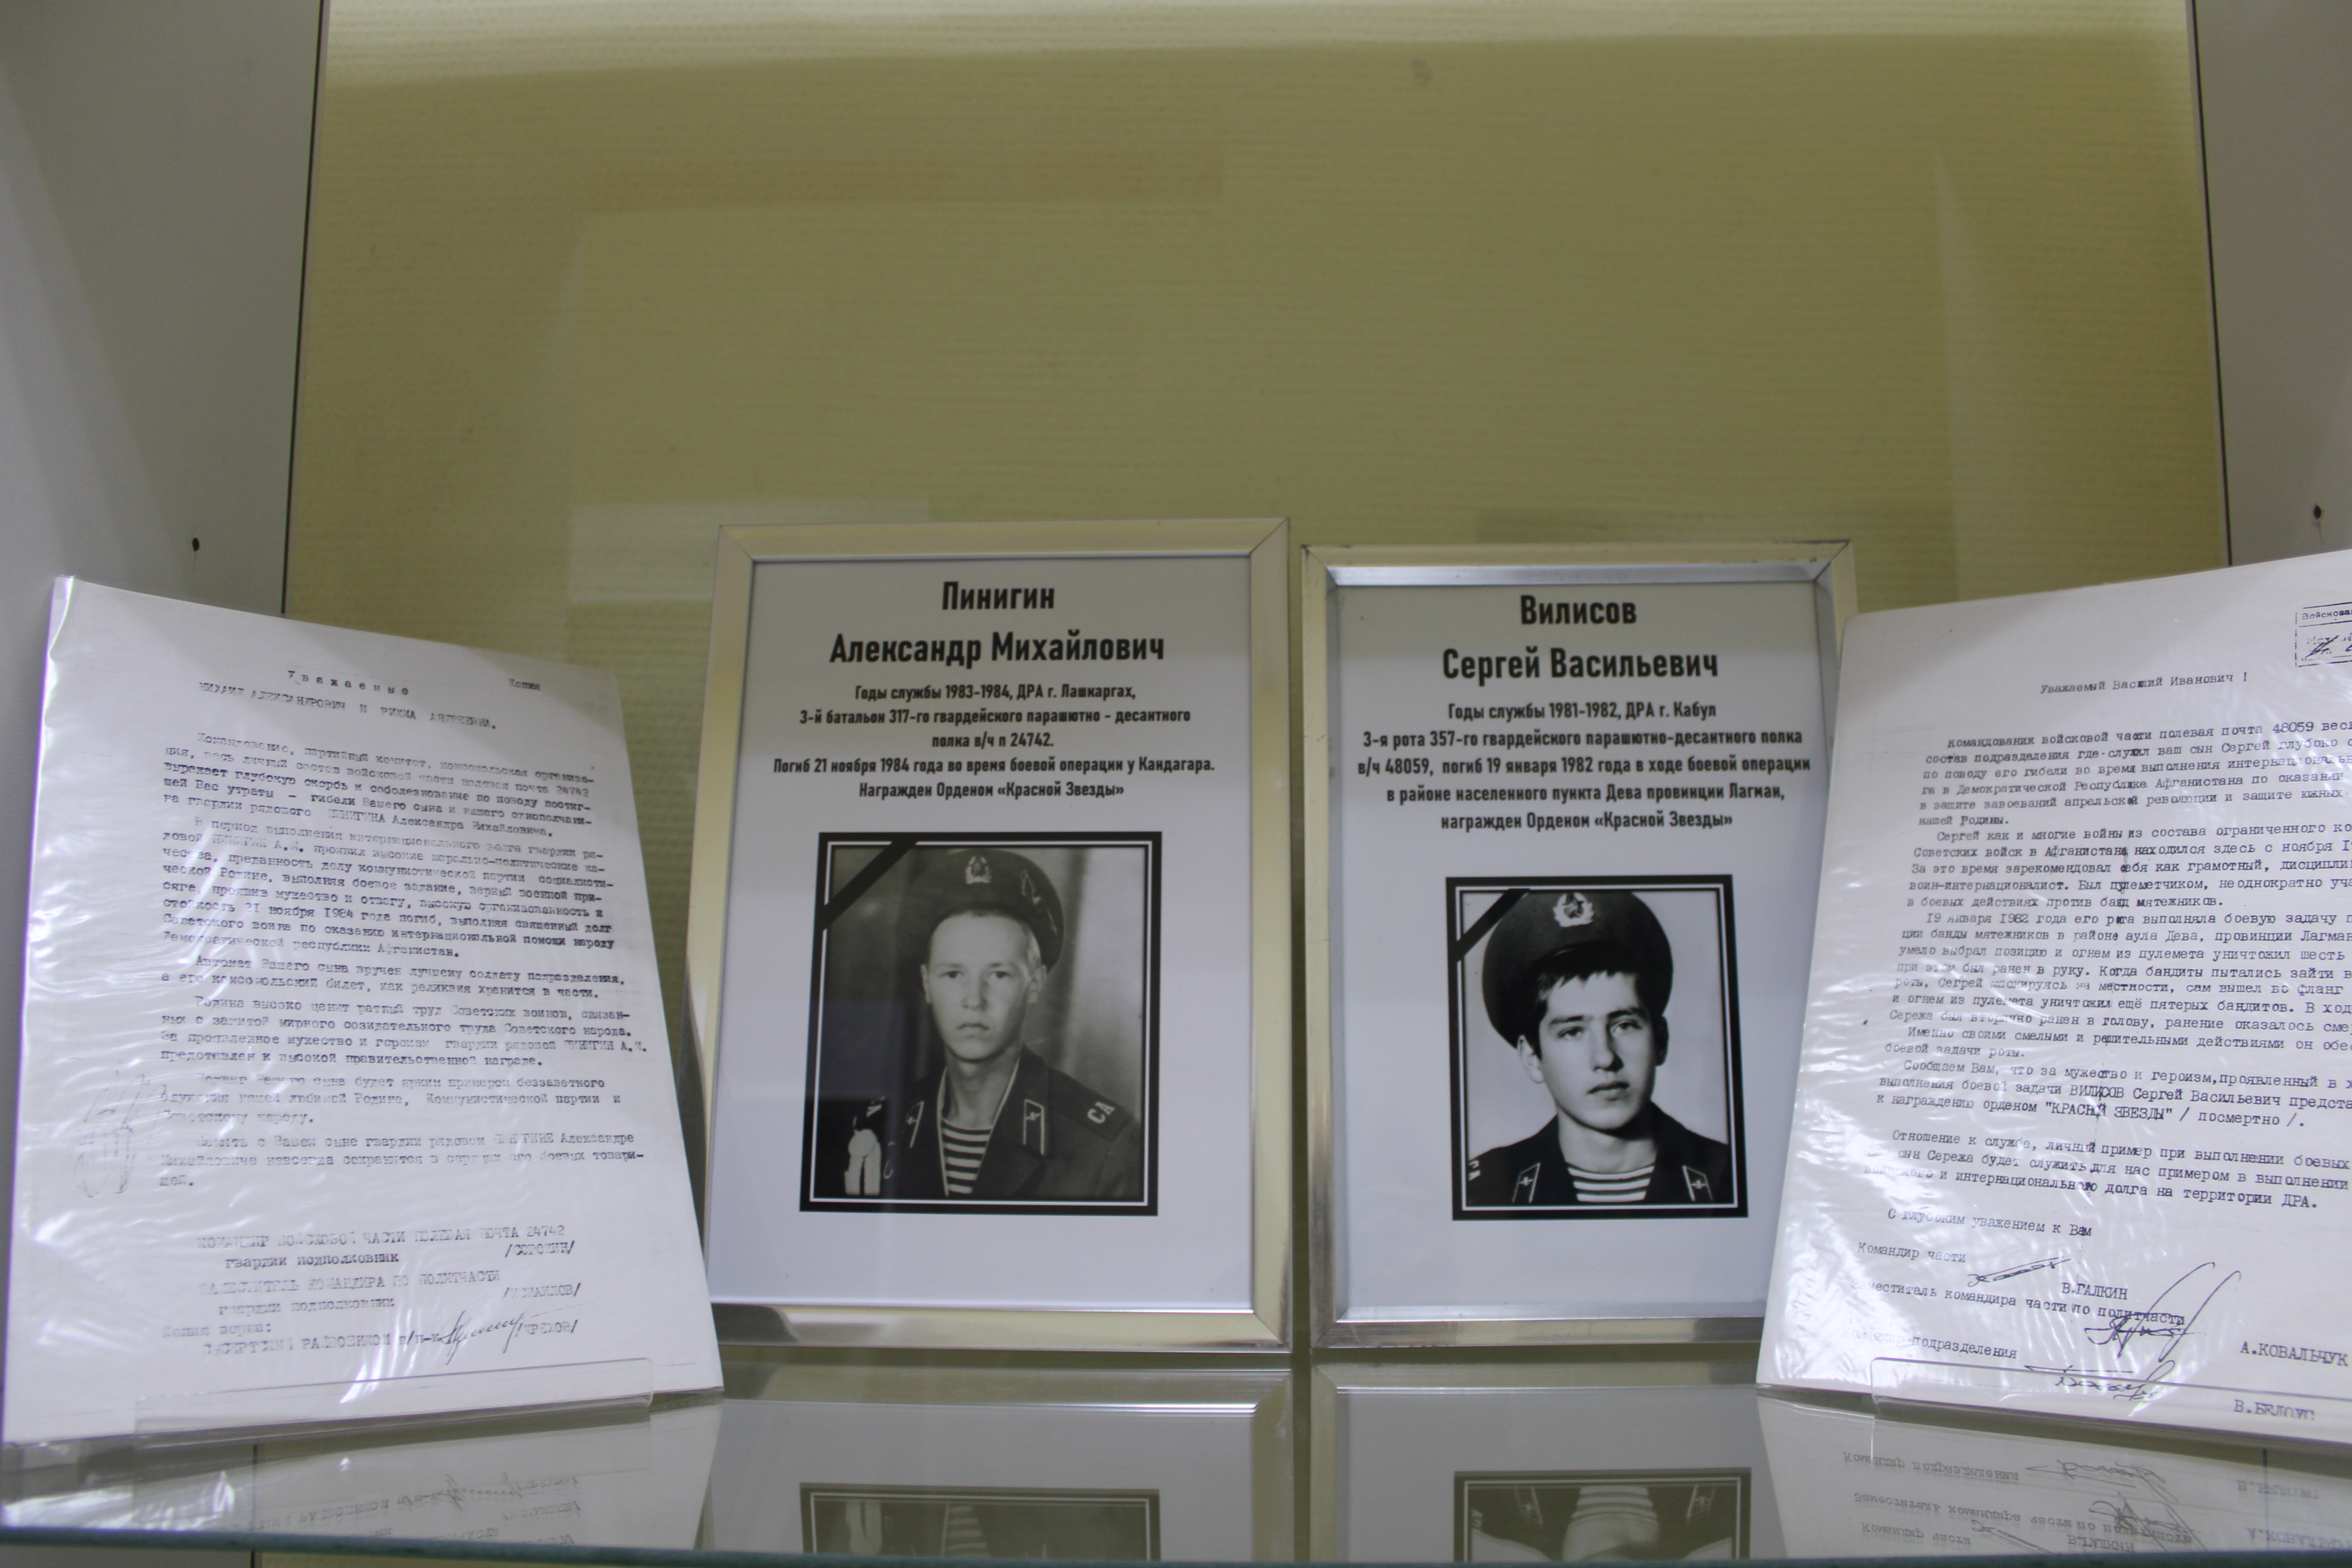 Уважаемые Копия
МИХАИЛ АЛЕКСАНДРОВИЧ И РИММА АНДРЕЕВНА.
Командование, партийный комитет, комсомольская организа-
ция, весь личный состав войсковой части полевая почта 24742
выражает глубокую скорбь и соболезнование по поводу постиг-
шей Вас утраты - гибели Вашего сына и нашего однополчани-
на гвардии рядового ПИНИГИНА Александра Михайловича.
В период выполнения интернационального долга гвардии ря-
довой ПИНИГИН А.М. проявил высокие морально-политические ка-
чества, преданность делу коммунистической партии социалисти-
ческой Родине, выполняя боевое задание, верный военной при-
сяге, проявив мужество и отвагу, высокую организованность и
стойкость 21 ноября 1984 года погиб, выполняя священный долг
Советского воина по оказанию интернациональной помощи народу
Демократической республики Афганистан.
Автомат Вашего сына вручен лучшему солдату подразделения,
а его комсомольский билет, как реликвия хранится в части.
Родина высоко ценит ратный труд Советских воинов, связан-
ных с защитой мирного созидательного труда Советского народа.
За проявленное мужество и героизм гвардии рядовой ПИНИГИН А.М.
представлен к высокой правительственной награде.
Подвиг Вашего сына будет ярким примером беззаветного
служения нашей любимой Родине, Коммунистической партии и
Советскому народу.
Память о Вашем сыне гвардии рядовом ПИНИГИНЕ Александре
Михайловиче навсегда сохранится в сердцах его боевых товари-
щей.
КОМАНДИР ВОЙСКОВОЙ ЧАСТИ ПОЛЕВАЯ ПОЧТА 24742
гвардии подполковник /СОРОКИН/
ЗАМЕСТИТЕЛЬ КОМАНДИРА ПО ПОЛИТЧАСТИ
гвардии подполковник
Копия верна:
Пинигин
Александр Михайлович
Годы службы 1983-1984, ДРА г. Лашкаргах,
3-й батальон 317-го гвардейского парашютно - десантного
полка в/ч п 24742.
Погиб 21 ноября 1984 года во время боевой операции у Кандагара.
Награжден Орденом «Красной Звезды»
СА
Вилисов
Сергей Васильевич
Годы службы 1981-1982, ДРА г. Кабул
3-я рота 357-го гвардейского парашютно-десантного полка
в/ч 48059, погиб 19 января 1982 года в ходе боевой операции
в районе населенного пункта Дева провинции Лагман,
награжден Орденом «Красной Звезды»
Войскова
Уважаемый Василий Иванович !
командованик войсковой части полевая почта 48059 весь
состав подразделения где-служил ваш сын Сергей глубоко с
по поводу его гибели во время выполнения интернациональн
га в Демократической Республике Афганистана по оказани
в защите завоеваний апрельской революции и защите южных
нашей Родины.
Сергей как и многие войны из состава ограниченного ко
Советских войск в Афганистане находился здесь с ноября 1
За это время зарекомендовал себя как грамотный, дисципли
воин-интернационалист. Был пулеметчиком, неоднократно уча
в боевых действиях против банд мятежников.
19 января 1982 года его рота выполняла боевую задачу п
ции банды мятежников в районе аула Дева, провинции Лагман
умело выбрал позицию и огнем из пулемета уничтожил шесть
при этом был ранен в руку. Когда бандиты пытались зайти в
роты, Сегрей маскируясь на местности, сам вышел во фланг
и огнем из пулемета уничтожил ещё пятерых бандитов. В ход
Сережа был вторично ранен в голову, ранение оказалось сме
Именно своими смелыми и решительными действиями он обес
боевой задачи роты.
Сообщаем Вам, что за мужество и героизм,проявленный в х
выполнения боевой задачи ВИЛИСОВ Сергей Васильевич предста
к награждению орденом "КРАСНОЙ ЗВЕЗДЫ" / посмертно /.
Отношение к службе, личный пример при выполнении боевых
сын Сережа будет служить для нас примером в выполнении
воинского и интернационального долга на территории ДРА.
С глубоким уважением к Вам
Командир части
В.ГАЛКИН
Заместитель командира части по политчасти
А.КОВАЛЬЧУК
Командир подразделения
В.БЕЛОУС